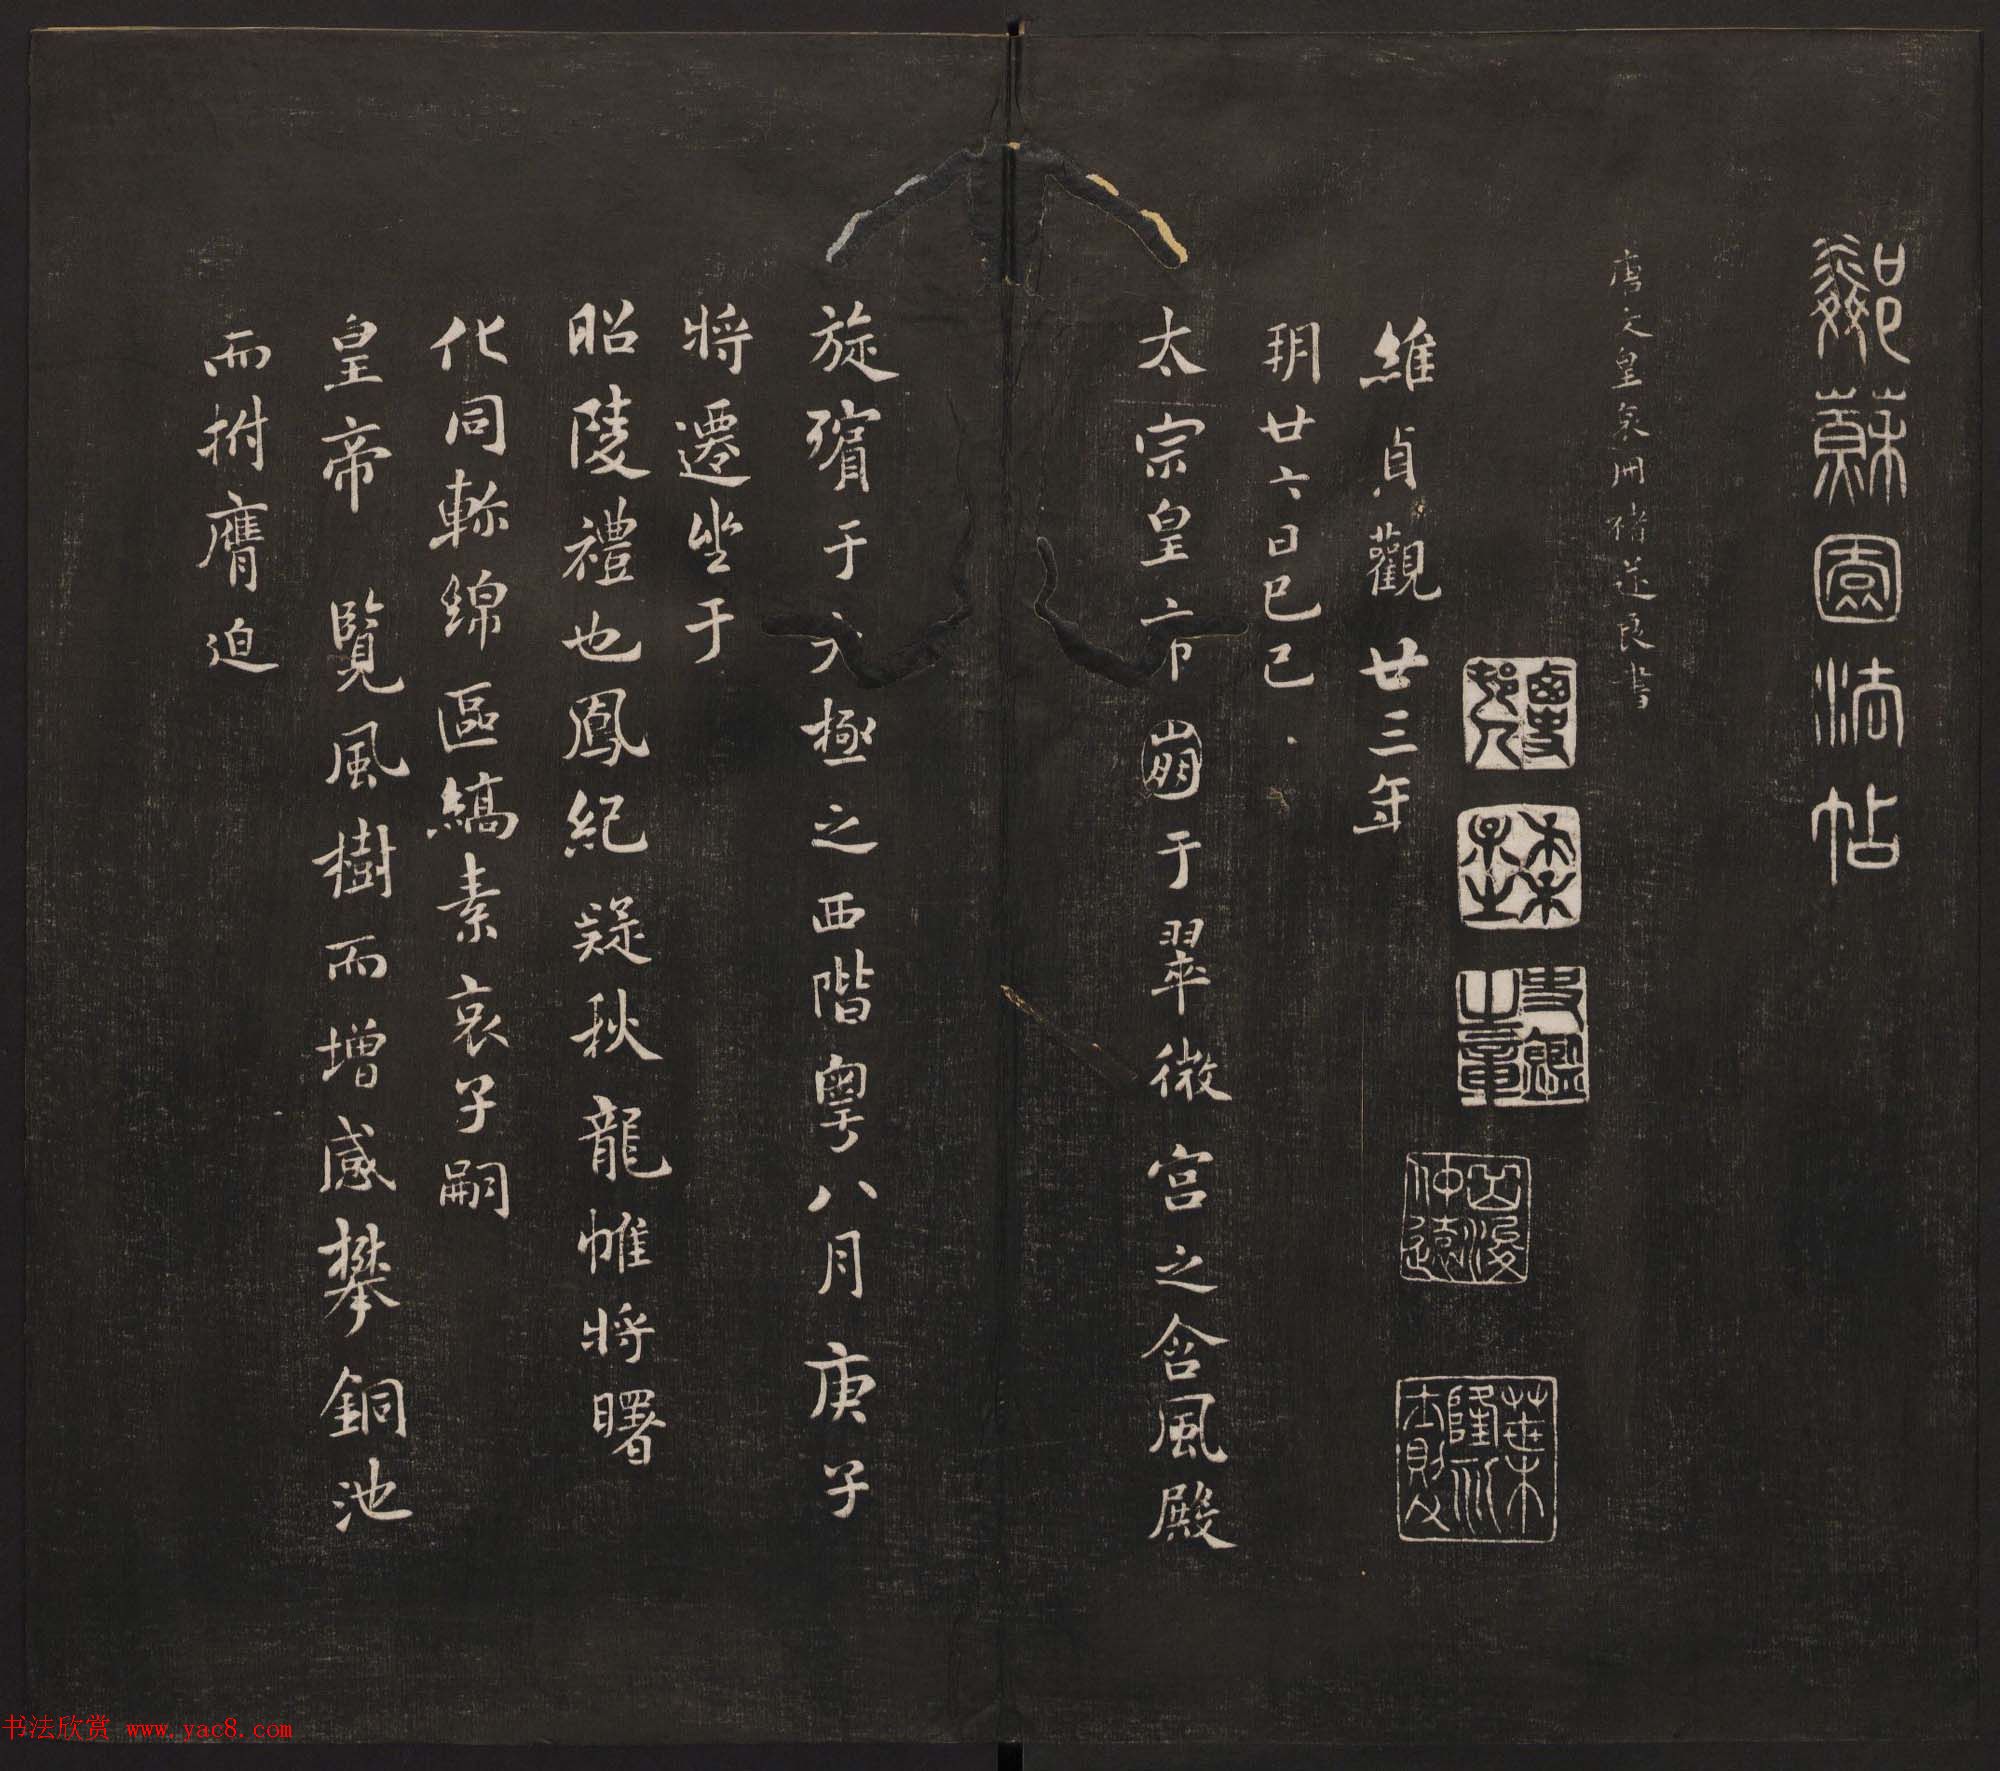 鄰蘇園法帖
唐文皇哀冊褚遂良書
維貞觀廿三年
玥廿六日巳己
太宗皇帝崩于翠微宮之含風殿
旋殯于六極之西階粵八月庚子
將遷坐于
昭陵禮也鳳紀疑秋龍帷將曙
化同軫綿區縞素哀子嗣
皇帝覽風樹而增感攀銅池
而拊膺迫
书法欣赏 www.yac8.com